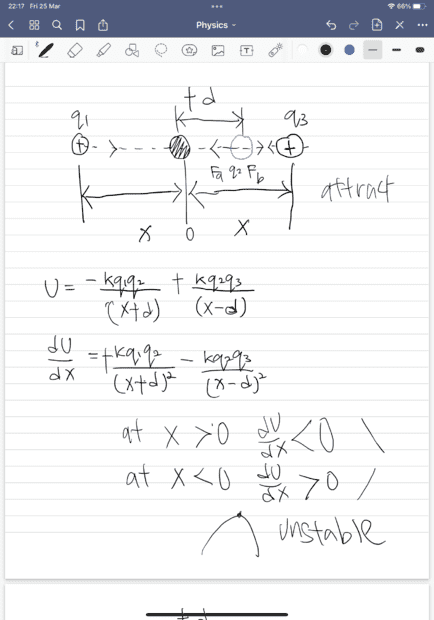 22:17 Fri 25 Mar
66%
Physics
+ d
q1
q3
+
-
+
Fa q2 Fb
attract
x 0 x
U = -kq1q2/(x+d) + kq2q3/(x-d)
dU/dx = +kq1q2/(x+d)² - kq2q3/(x-d)²
at x > 0 dU/dx < 0 \
at x < 0 dU/dx > 0 /
unstable
+ d